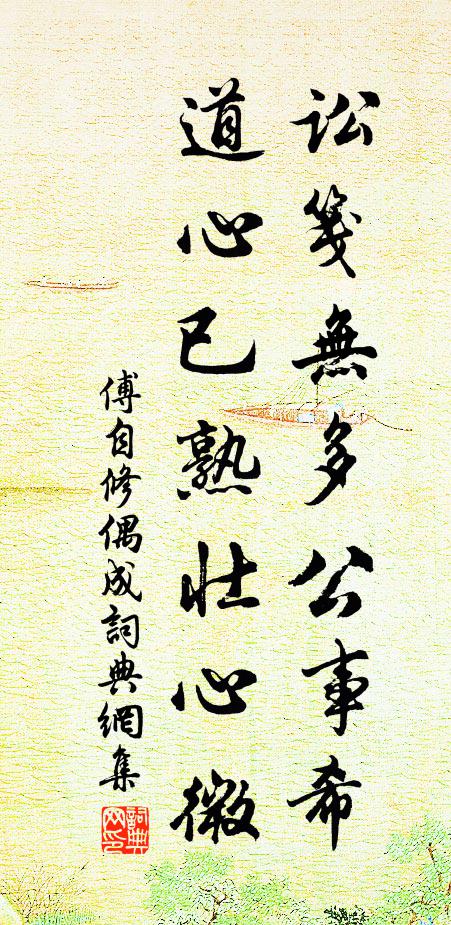 訟箋無多公事希
道心已熟壯心微
傅自修偶成詞典網集
詞典网印